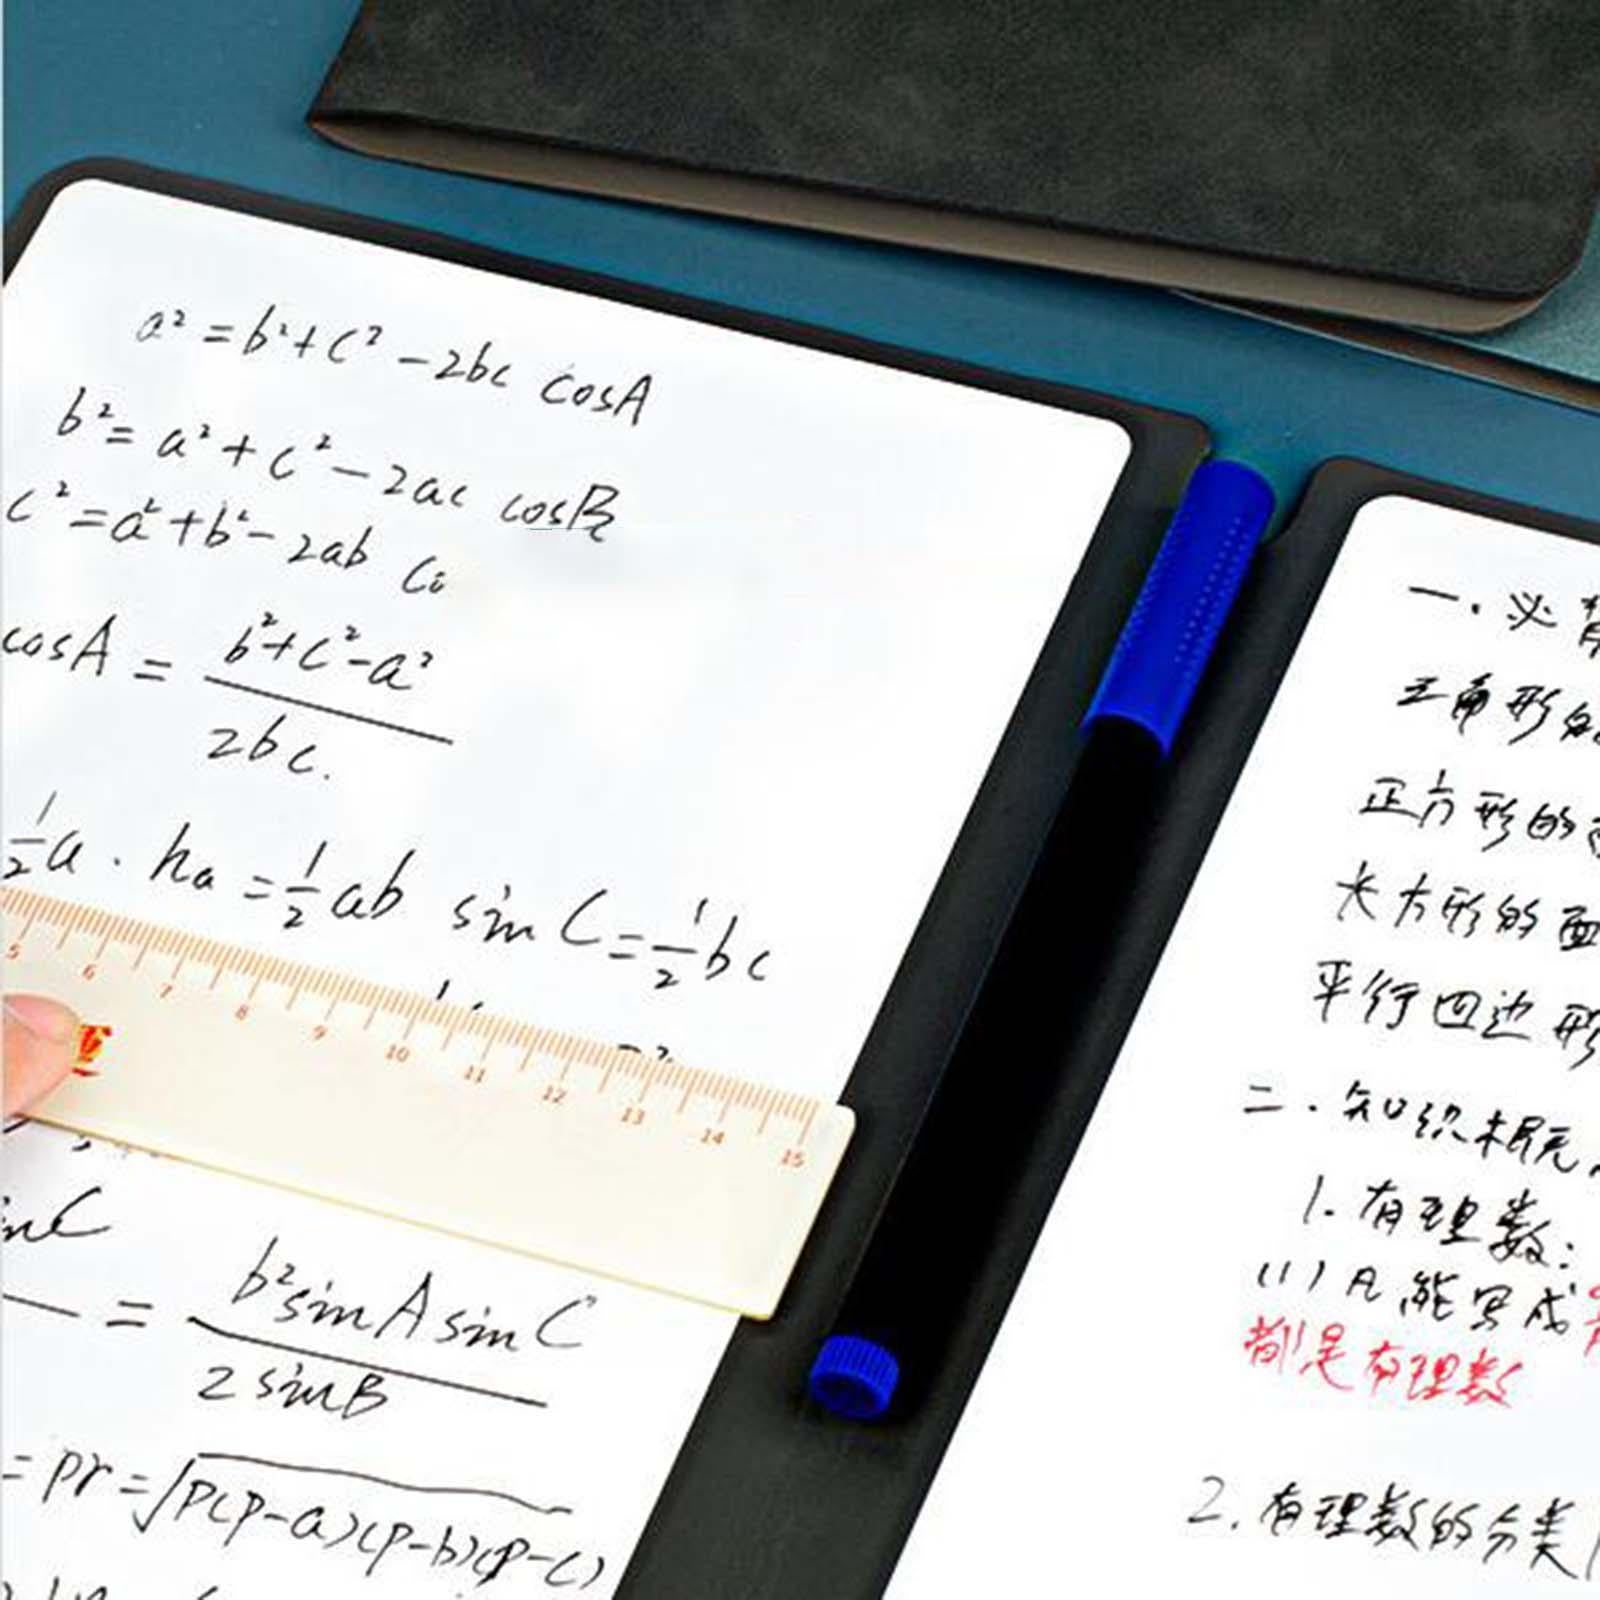 a² = b² + c² - 2bc cosA
b² = a² + c² - 2ac cosB
c² = a² + b² - 2ab
cosA = b²+c²-a² / 2bc.
1/2 a · ha = 1/2 ab sin C = 1/2 bc
5 6 7 8 9 10 11 12 13 14 15
inC
= b²sinA sinC / 2 sinB
= pr = √p(p-a)(p-b)(p-c)
一.必背
三角形的
正方形的面
长方形的面
平行四边形
二.知识梳理
1.有理数:
(1)凡能写成
都是有理数
2.有理数的分类